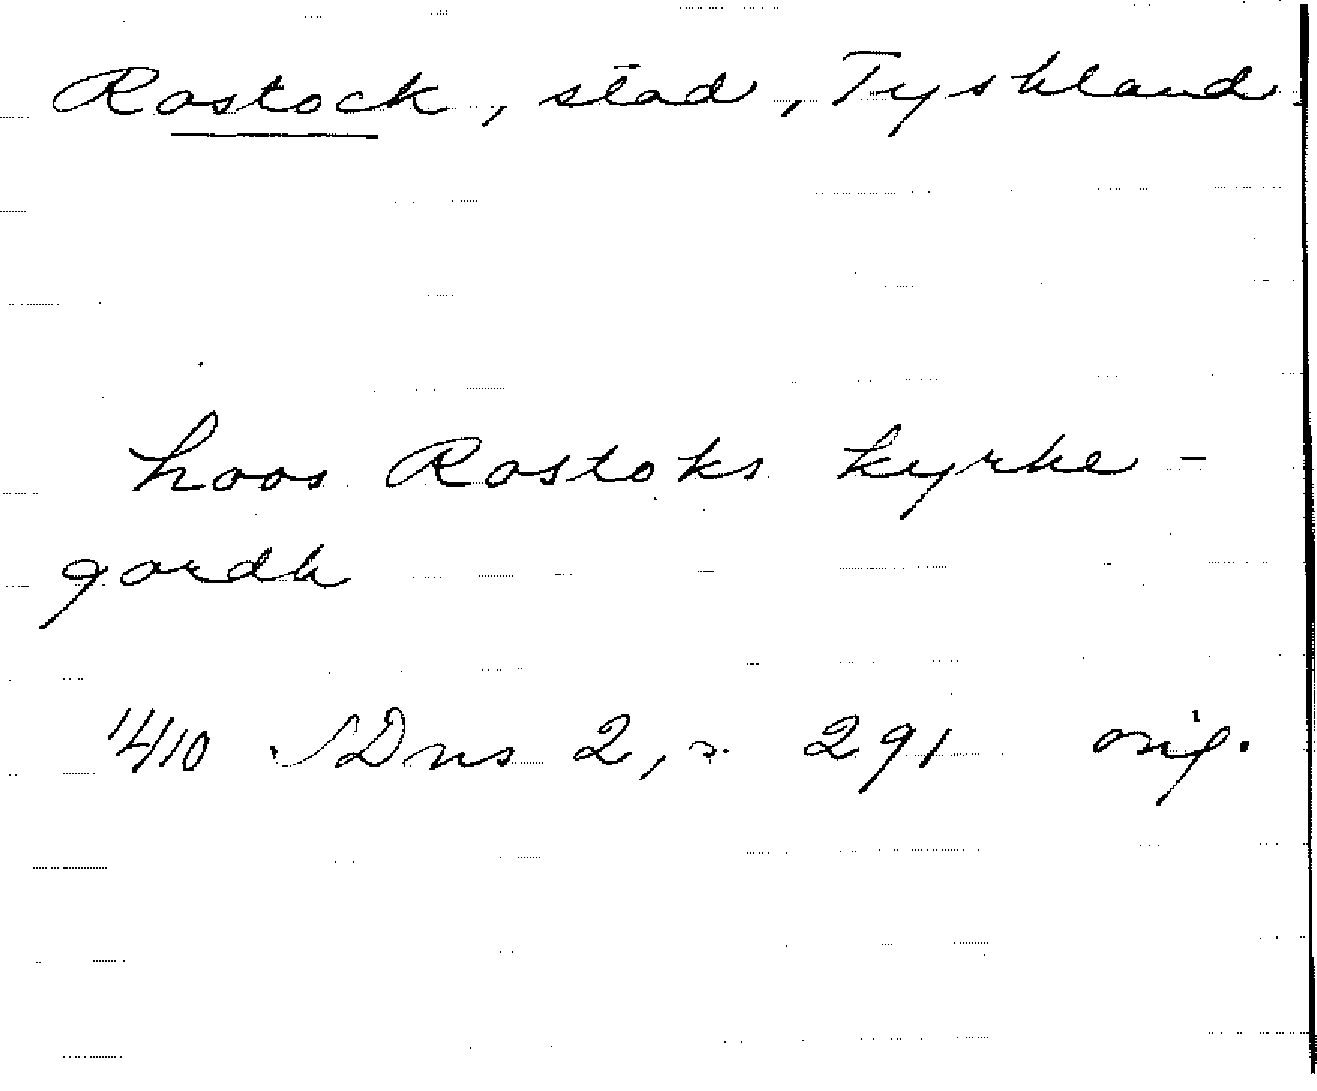 Rostock, stad, Tyskland
hoos Rostoks kyrke-
gardh
1410 SDns 2, s. 291 orig.